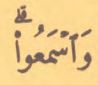 وَٱسْمَعُوا۟ ۗ